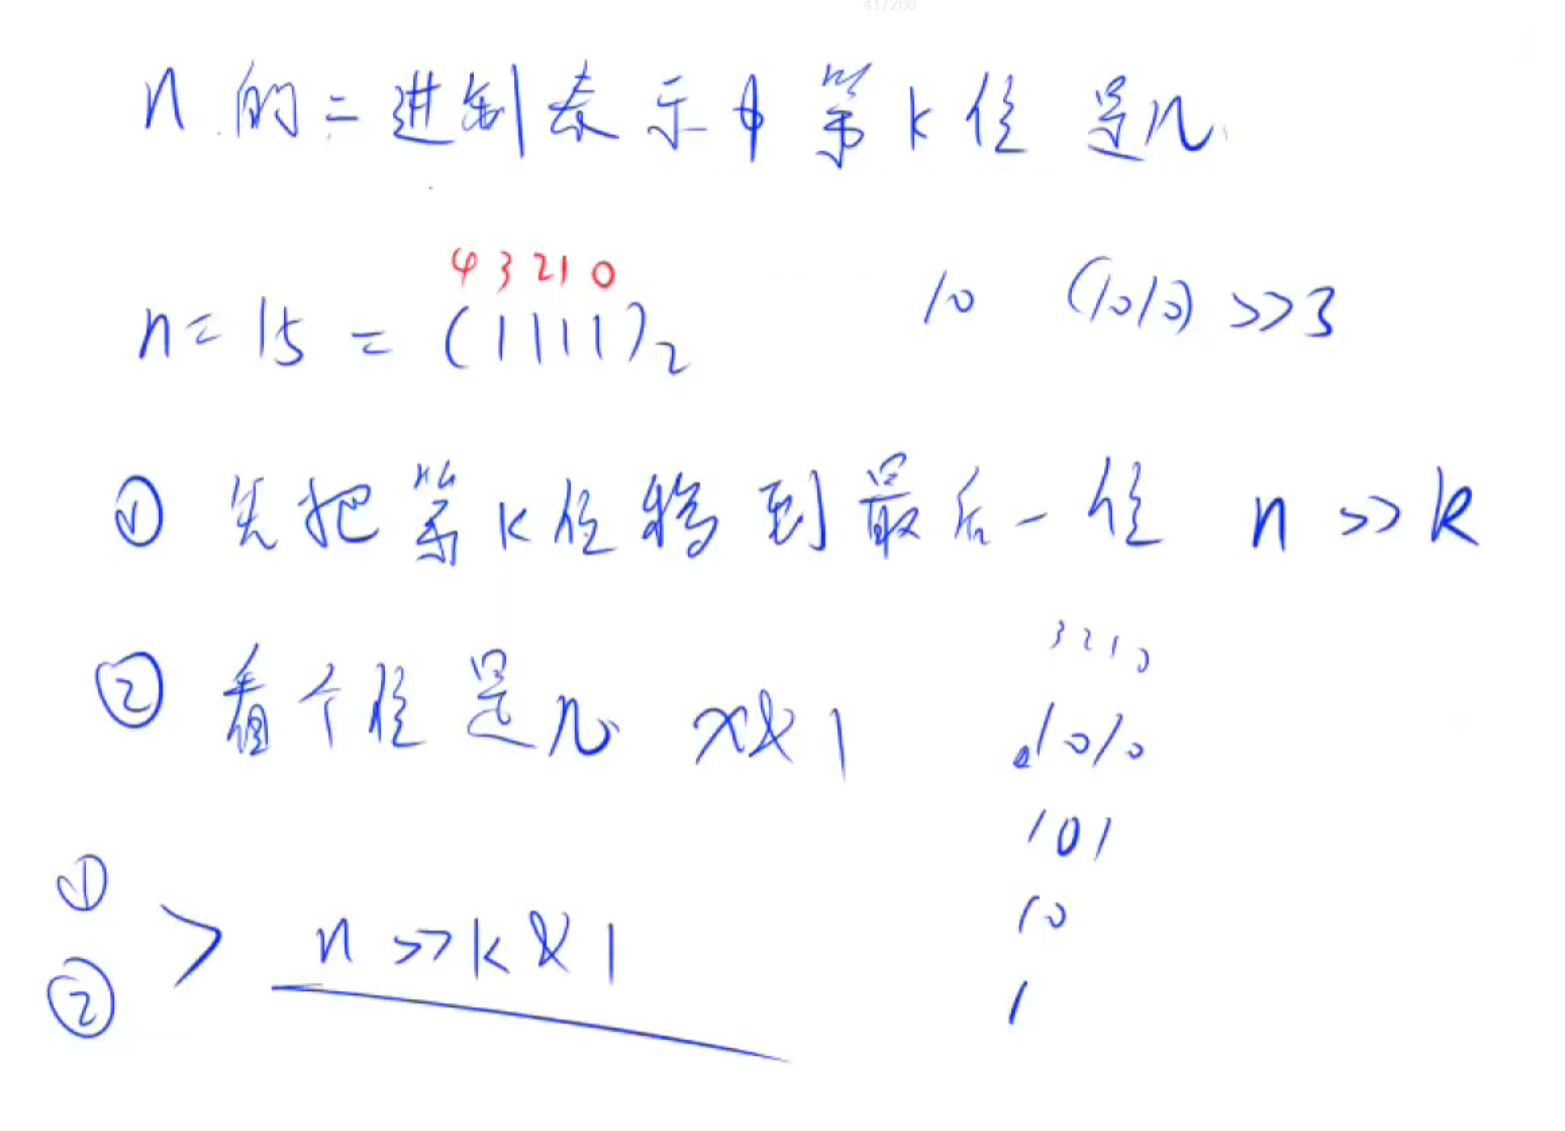 417266
n 的二进制表示中第k位是几
4 3 2 1 0
n = 15 = (1111)₂
10 (1010) >> 3
① 先把第k位移到最后一位 n >> k
② 看个位是几 x & 1
3 2 1 0
1010
101
10
1
①
② > n >> k & 1